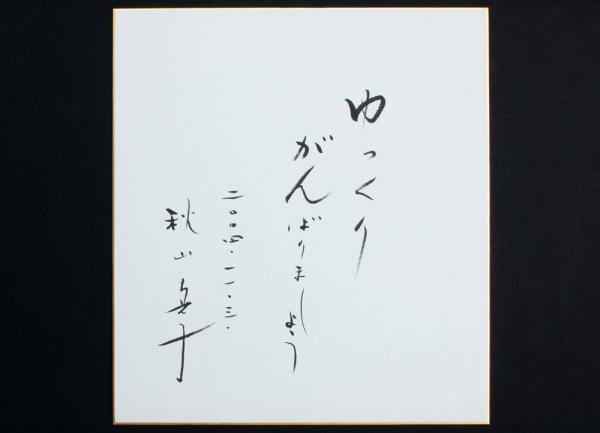 ゆっくり
がんばりましょう
二〇〇四・一一・三・
秋山